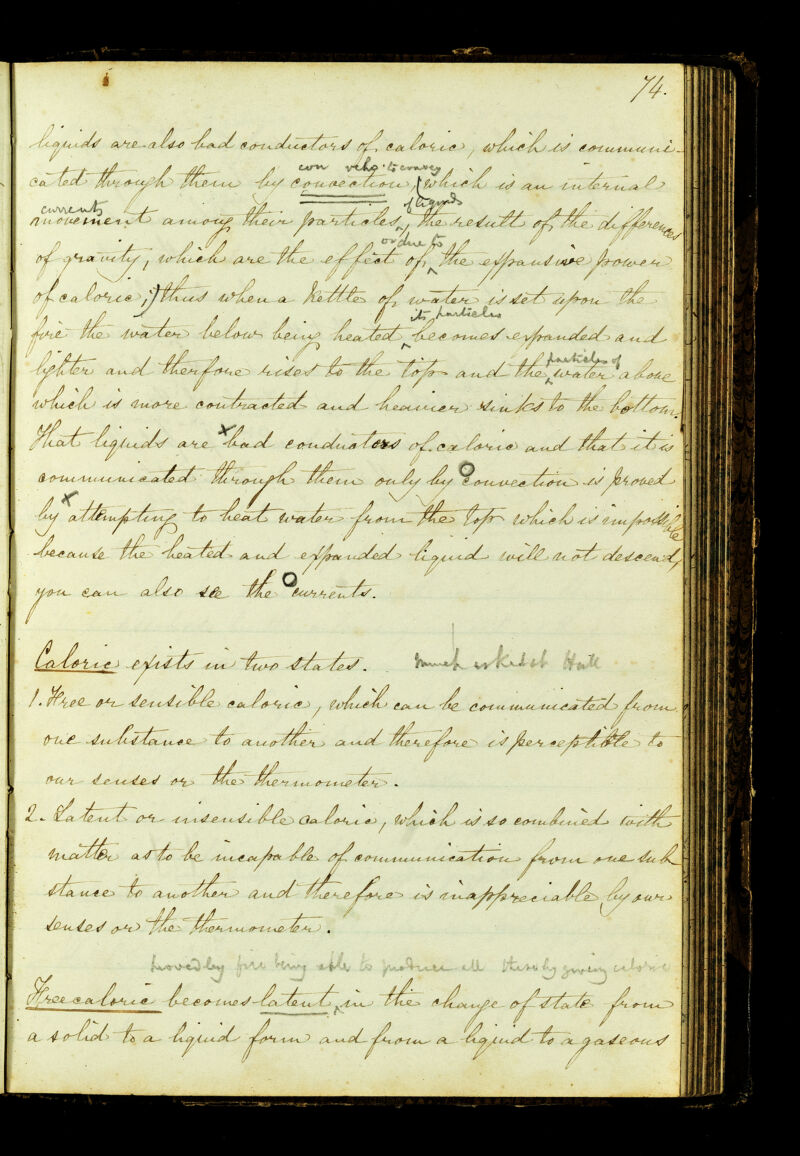 74.
liquids are also bad conductors of caloric, which is communi-
con veho to convey
cated through them by convection (which is an internal
currents of liquids
movement among their particles, the result of the differences
or due to
of gravity, which are the effect of the expansive power
of caloric;) thus when a Kettle of water is set upon the
its particles
fire the water below being heated becomes expanded and
particles of
lighter and therfore rises to the top and the water above
which is more contracted and heavier sinks to the bottom.
That liquids are x bad conductors of caloric and that it is
communicated through them only by convection is proved
by x attempting to heat water from the top which is impossible
because the heated and expanded liquid will not descend,
you can also see the currents.
Caloric exists in two states. much asked at Hall
1. Free or sensible caloric, which can be communicated from
one substance to another and therefore is perceptible to
our senses or the thermometer.
2. Latent or insensible caloric, which is so combined with
matter as to be incapable of communication from one sub
stance to another and therefore is inappreciable by our
senses or the thermometer.
proved by fire being able to produce all thereby giving caloric
Free caloric becomes latent in the change of state from
a solid to a liquid form and from a liquid to a gaseous